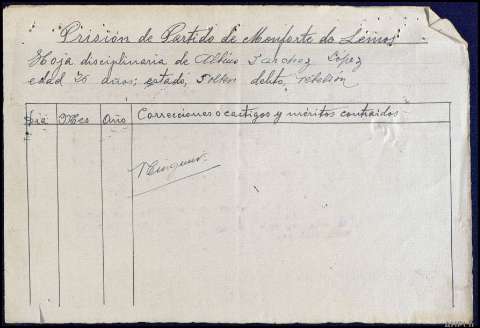 Prisión de Partido de Monforte de Lemos
Hoja disciplinaria de Albino Sanchez López
edad 26 años; estado, Soltero delito, rebelión
Día Mes Año Correcciones o castigos y méritos contraidos
Ninguno.